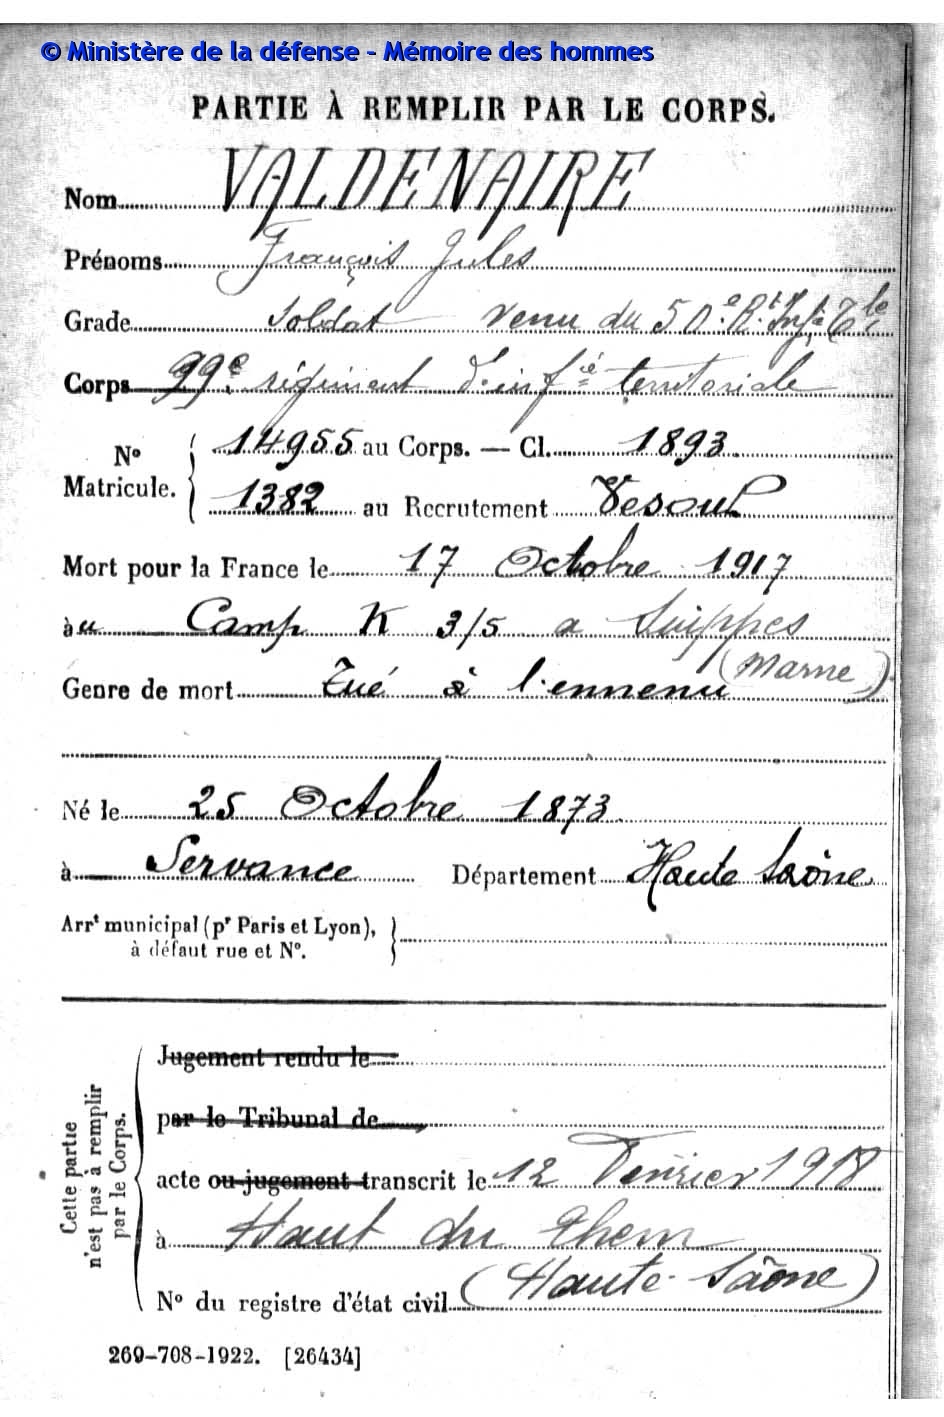 © Ministère de la défense - Mémoire des hommes
PARTIE À REMPLIR PAR LE CORPS.
Nom VALDENAIRE
Prénoms François Jules
Grade Soldat venu du 50e Rt Infie Tle
Corps 99e régiment d'infie territoriale
No Matricule. { 14955 au Corps. — Cl. 1893
1382 au Recrutement Vesoul
Mort pour la France le 17 Octobre 1917
àu Camp K 3/5 a Suippes
(Marne)
Genre de mort Tué à l'ennemi
Né le 25 Octobre 1873
à Servance Département Haute Saône
Arrt municipal (pr Paris et Lyon),
à défaut rue et No.
Cette partie
n'est pas à remplir
par le Corps.
Jugement rendu le
par le Tribunal de
acte ou jugement transcrit le 12 Février 1918
à Haut du Them
(Haute-Saône)
No du registre d'état civil
269-708-1922. [26434]